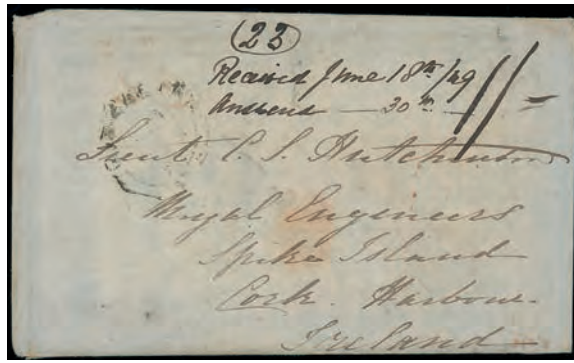 23
Received June 18th/49
Answered — 30th
Lieut C. S. Hutchinson
Royal Engineers
Spike Island
Cork Harbour
Ireland